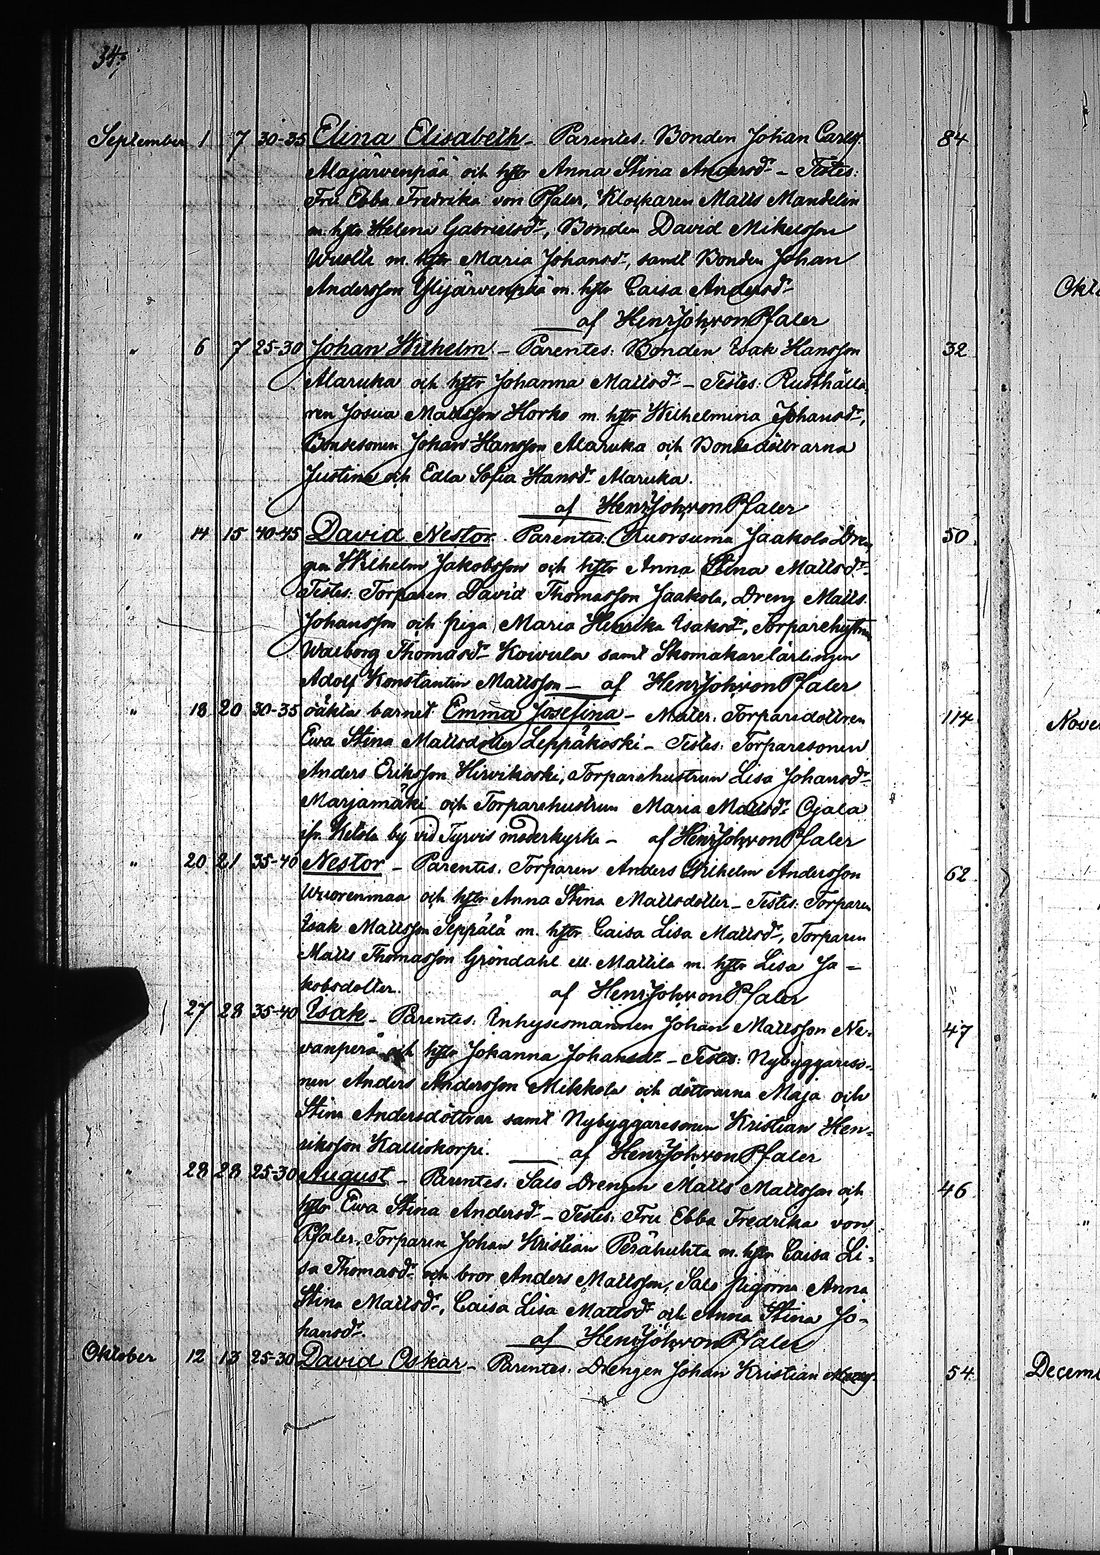 34.
September 1 7 30-35 Elina Elisabeth - Parentes: Bonden Johan Carls 84
Majärvenpää och hstr Anna Stina Andersdr - Testes:
Fru Ebba Fredrika von Pfaler, Klockaren Matts Mandelin
m. hstr Helena Gabrielsdr, Bonden David Mikelsson
m. hstr Maria Johansdr, samt Bonden Johan
Andersson Ylijärvenpää m. hstr Caisa Andersdr
af Henr Joh von Pfaler
" 6 7 25-30 Johan Wilhelm - Parentes: Bonden Isak Hansson 32
Alaruka och hstr Johanna Mattsdr - Testes: Rusthålla
ren Josua Mattsson Horko m. hstr Wilhelmina Johansdr,
Bondesonen Johan Hansson Alaruka och Bondedöttrarna
Justina och Edla Sofia Hansdr Alaruka.
af Henr Joh von Pfaler
" 14 15 40-45 David Nestor - Parentes: Kuorsuma Jaakola Dren 50
gen Wilhelm Jakobsson och hstr Anna Stina Mattsdr
Testes: Torparen David Thomasson Jaakola, Dreng Matts
Johansson och piga Maria Henrika Isaksdr, Torparehustrun
Walborg Thomasdr Koivula samt Skomakarelärlingen
Adolf Konstantin Mattsson - af Henr Joh von Pfaler
" 18 20 30-35 oäkta barnet Emma Josefina - Mater: Torparedottren 114
Ewa Stina Mattsdotter Leppäkoski - Testes: Torparesonen
Anders Eriksson Hirvikoski, Torparehustrun Lisa Johansdr
Marjamäki och Torparehustrun Maria Mattsdr Ojala
ifr. Ketola by vid Tyrvis moderkyrka - af Henr Joh von Pfaler
" 20 21 35-40 Nestor - Parentes: Torparen Anders Wilhelm Andersson 62
Wuorenmaa och hstr Anna Stina Mattsdotter - Testes: Torparen
Isak Mattsson Seppälä m. hstr Caisa Lisa Mattsdr, Torparen
Matts Thomasson Gröndahl ell. Mattila m. hstr Lisa Ja-
kobsdotter. af Henr Joh von Pfaler
27 28 35-40 Isak - Parentes: Inhysesmannen Johan Mattsson Ne- 47
vanperä och hstr Johanna Johansdr - Testes: Nybyggareso-
nen Anders Andersson Mikkola och döttrarna Maja och
Stina Andersdöttrar samt Nybyggaresonen Kristian Hen-
riksson Kalliokorpi. af Henr Joh von Pfaler
" 28 28 25-30 August - Parentes: Salo Drengen Matts Mattsson och 46
hstr Ewa Stina Andersdr - Testes: Fru Ebba Fredrika von
Pfaler, Torparen Johan Kristian Perähuhta m. hstr Caisa Li-
sa Thomasdr och bror Anders Mattsson, Salo pigorna Anna
Stina Mattsdr, Caisa Lisa Mattsdr och Anna Stina Jo-
hansdr. af Henr Joh von Pfaler
Oktober 12 13 25-30 David Oskar - Parentes: Drengen Johan Kristian 54
Okt
Nove
"
Decem